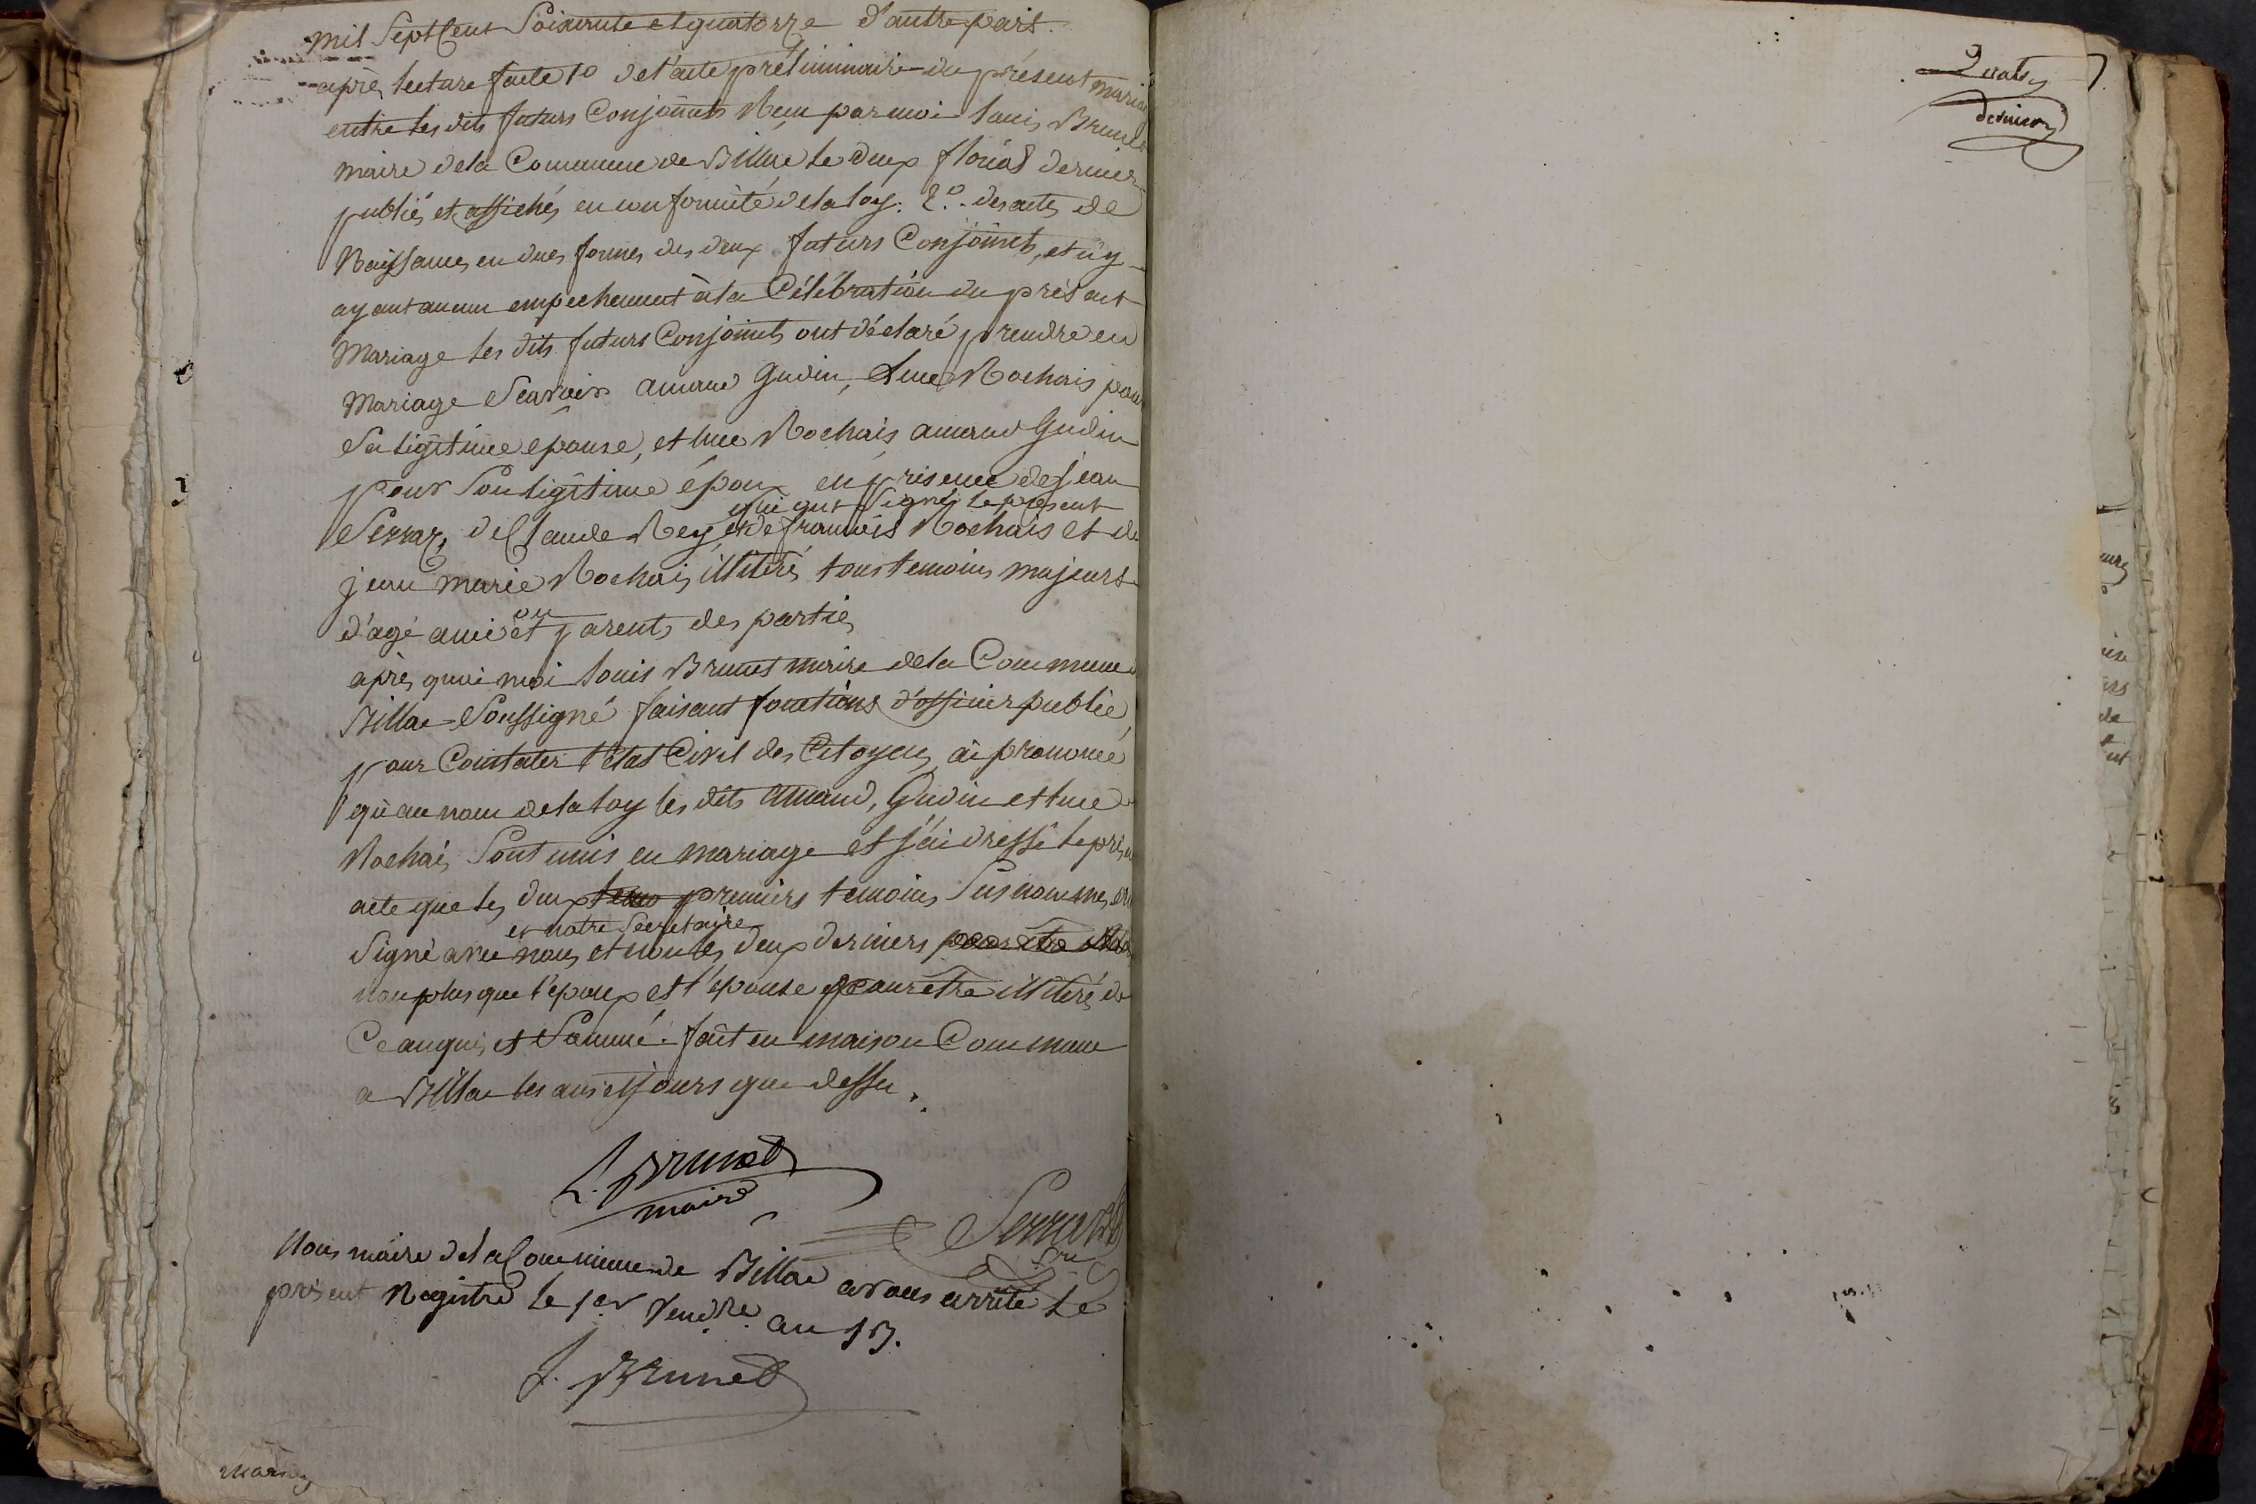 mil Sept Cent Soixante et quatorze d'autre part.
après lecture faite 1o de l'acte préliminaire du présent maria
entre les dits futurs Conjoints Reçu par moi Louis Brunet
maire de la Commune de Billac le deux floréal dernier
publiés et affichés en conformité de la loy. 2o. des actes de
Naissances en dues formes des deux futurs Conjoints, et n'y
ayant aucun empechement à la Célébration du présent
Mariage les dits futurs Conjoints ont déclaré prendre en
Mariage Scavoir Amand Gudin, Luce Rochais pour
Sa ligitime epouse, et luce Rochais amand Gudin
pour Son ligitime époux en présence de jean
qui ont Signés le présent
Serraz, de Claude Rey, et de francois Rochais et de
jean marie Rochais, illiteré, tous temoins majeurs
ou
d'agé amis et parents des parties
après quoi moi Louis Brunet maire de la Commune
Billac Soussigné faisant fonctions d'officier public
pour Constater l'état Civil des Citoyens ai prononcé
qu'au nom de la loy les dits amand, Gudin et luce
Rochais Sont unis en mariage et j'ai dressé le prés
acte que les deux premiers temoins Susnommés
et notre Secretaire
Signé avec nous et non les deux derniers
non plus que l'epoux et l'epouse pour etre illiteré de
Ce enquis et Sommé. fait en maison Commune
a Billac les ans et jours que dessu.
L. Brunet
maire
Serraz
Nous maire de la Commune de Billac avons arrété le
présent Registre le 1er Vendre. an 13.
L. Brunet
dernier